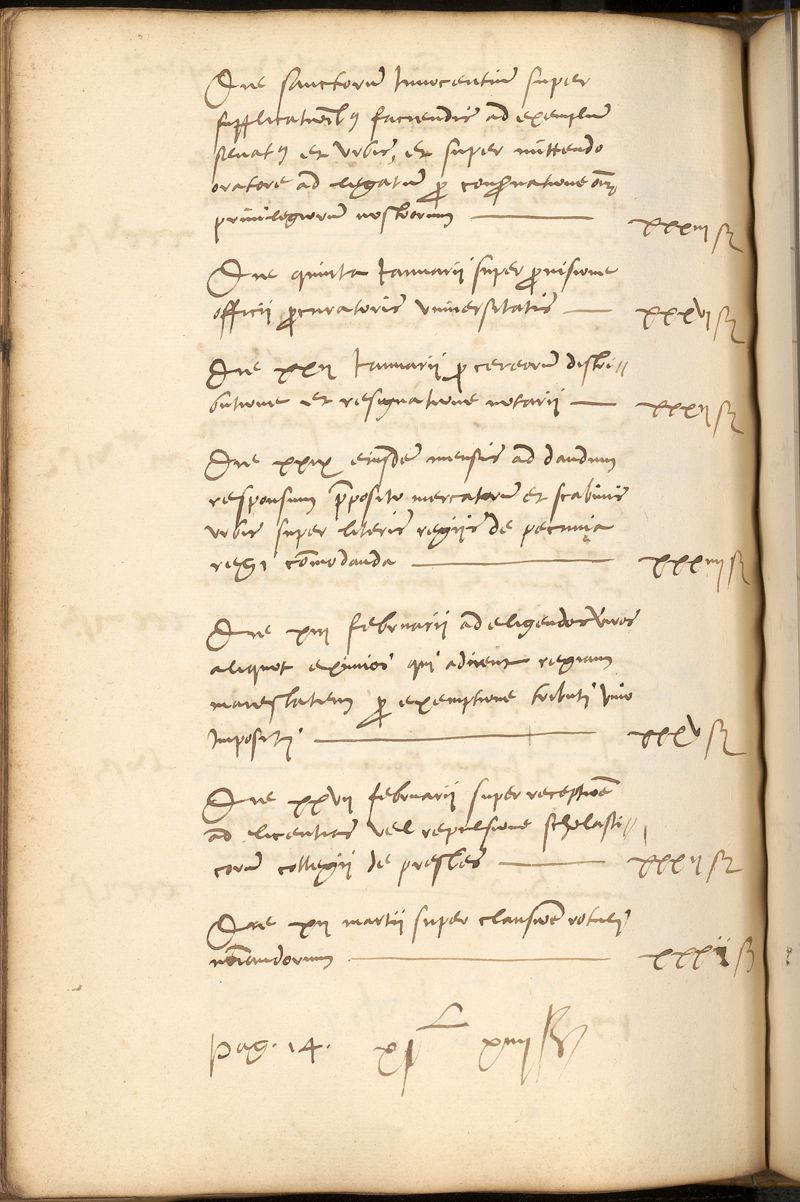 Die sanctorum Innocentium super
supplicationibus faciendis ad exemplum
senatus et urbis, et super mittendo
oratore ad legatum pro confirmatione omnium
privilegiorum nostrorum — xxxiii s
Die quinta Januarii super provisione
officii procuratoris universitatis — xxxvi s
Die xxii Januarii pro cereorum distri//
butione et resignatione notarii — xxxii s
Die xxix eiusdem mensis ad dandum
responsum preposito mercatorum et scabinis
urbis super literis regiis de pecunia
regi commodanda — xxxiiii s
Die xiii februarii ad eligendos viros
aliquot eximios qui adirent regiam
maiestatem pro exemptione tributi vino
impositi — xxxv s
Die xxvii februarii super receptione
ad licentias vel repulsione scholasti//
corum collegii de presles — xxxii s
Die xii martii super clausione rotuli
nominandorum — xxxii s
pag. 14. xi L xiiii s